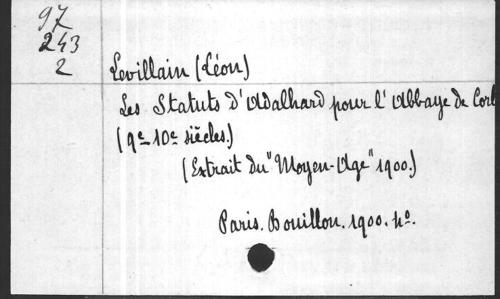 97
243
2
Levillain (Léon)
Les Statuts d'Adalhard pour l'Abbaye de Corb
(9e-10e siècles.)
(Extrait du "Moyen-Age" 1900.)
Paris. Bouillon. 1900. 4o.